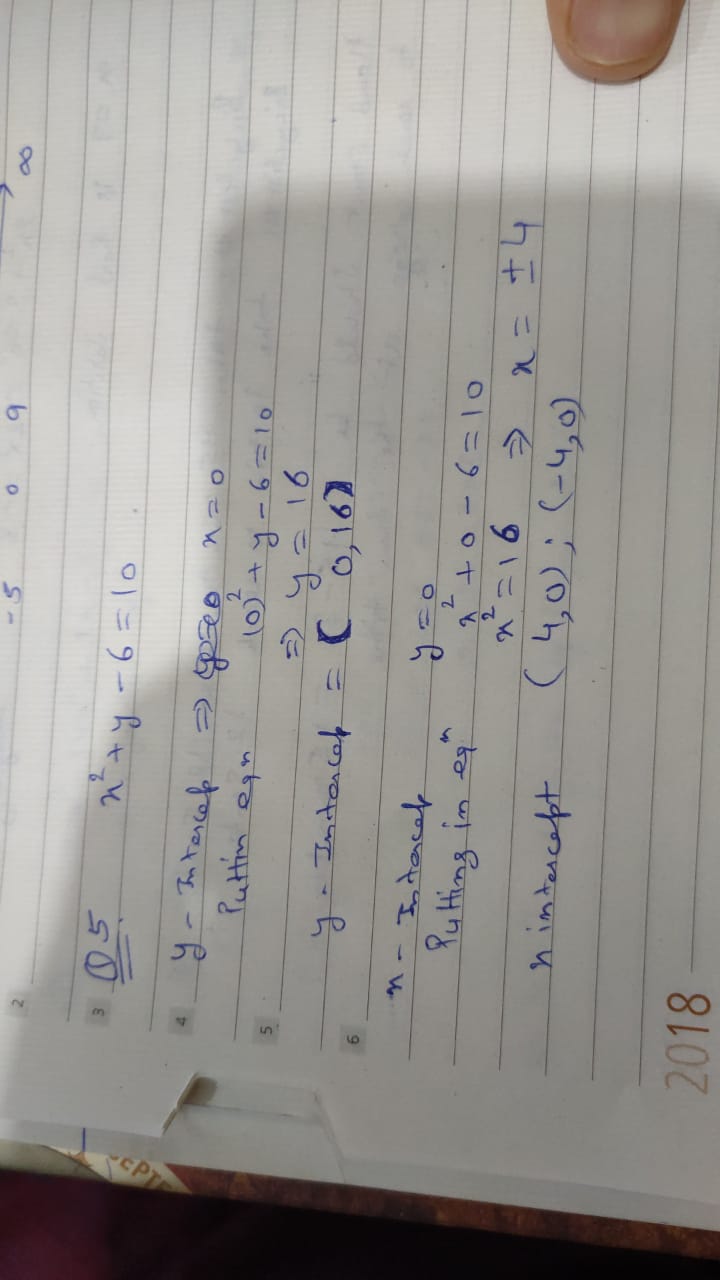 -5 0 9 ∞
2
3 Q5 x² + y - 6 = 10
4 y - Intercep ⇒ x = 0
Puttin eqn (0)² + y - 6 = 10
5 ⇒ y = 16
y - Intercep = ( 0, 16)
6
x - Intercep y = 0
Putting in eqⁿ x² + 0 - 6 = 10
x² = 16 ⇒ x = ± 4
x intercept (4,0) ; (-4,0)
2018
SEPTE